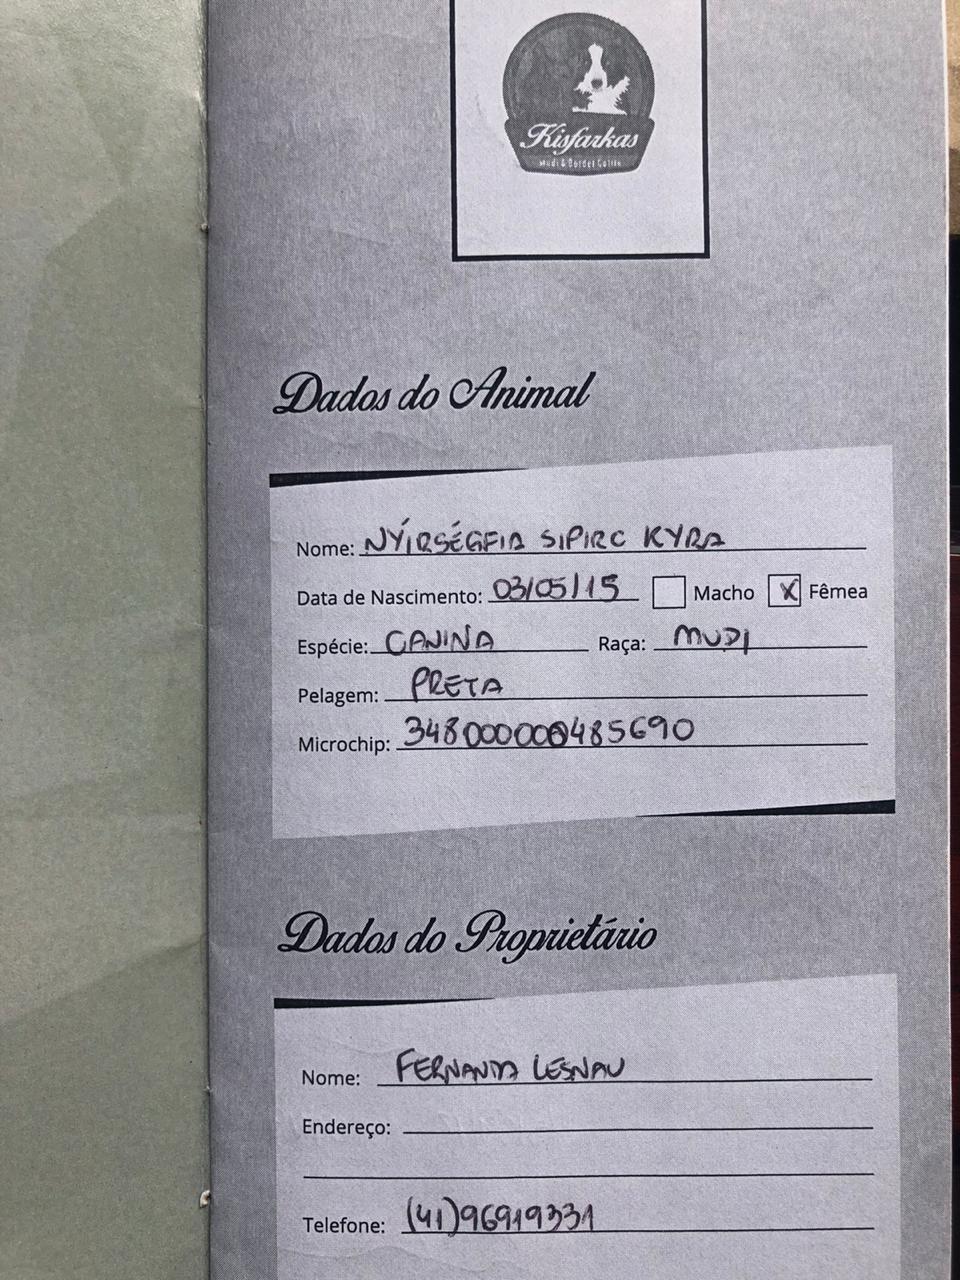 Kisfarkas
Mudi & Border Collie
Dados do Animal
Nome: NYÍRSÉGFIA SIPIRC KYRA
Data de Nascimento: 03/05/15 Macho X Fêmea
Espécie: CANINA Raça: MUDI
Pelagem: PRETA
Microchip: 348000000485690
Dados do Proprietário
Nome: FERNANDA LESNAU
Endereço:
Telefone: (41)96919331